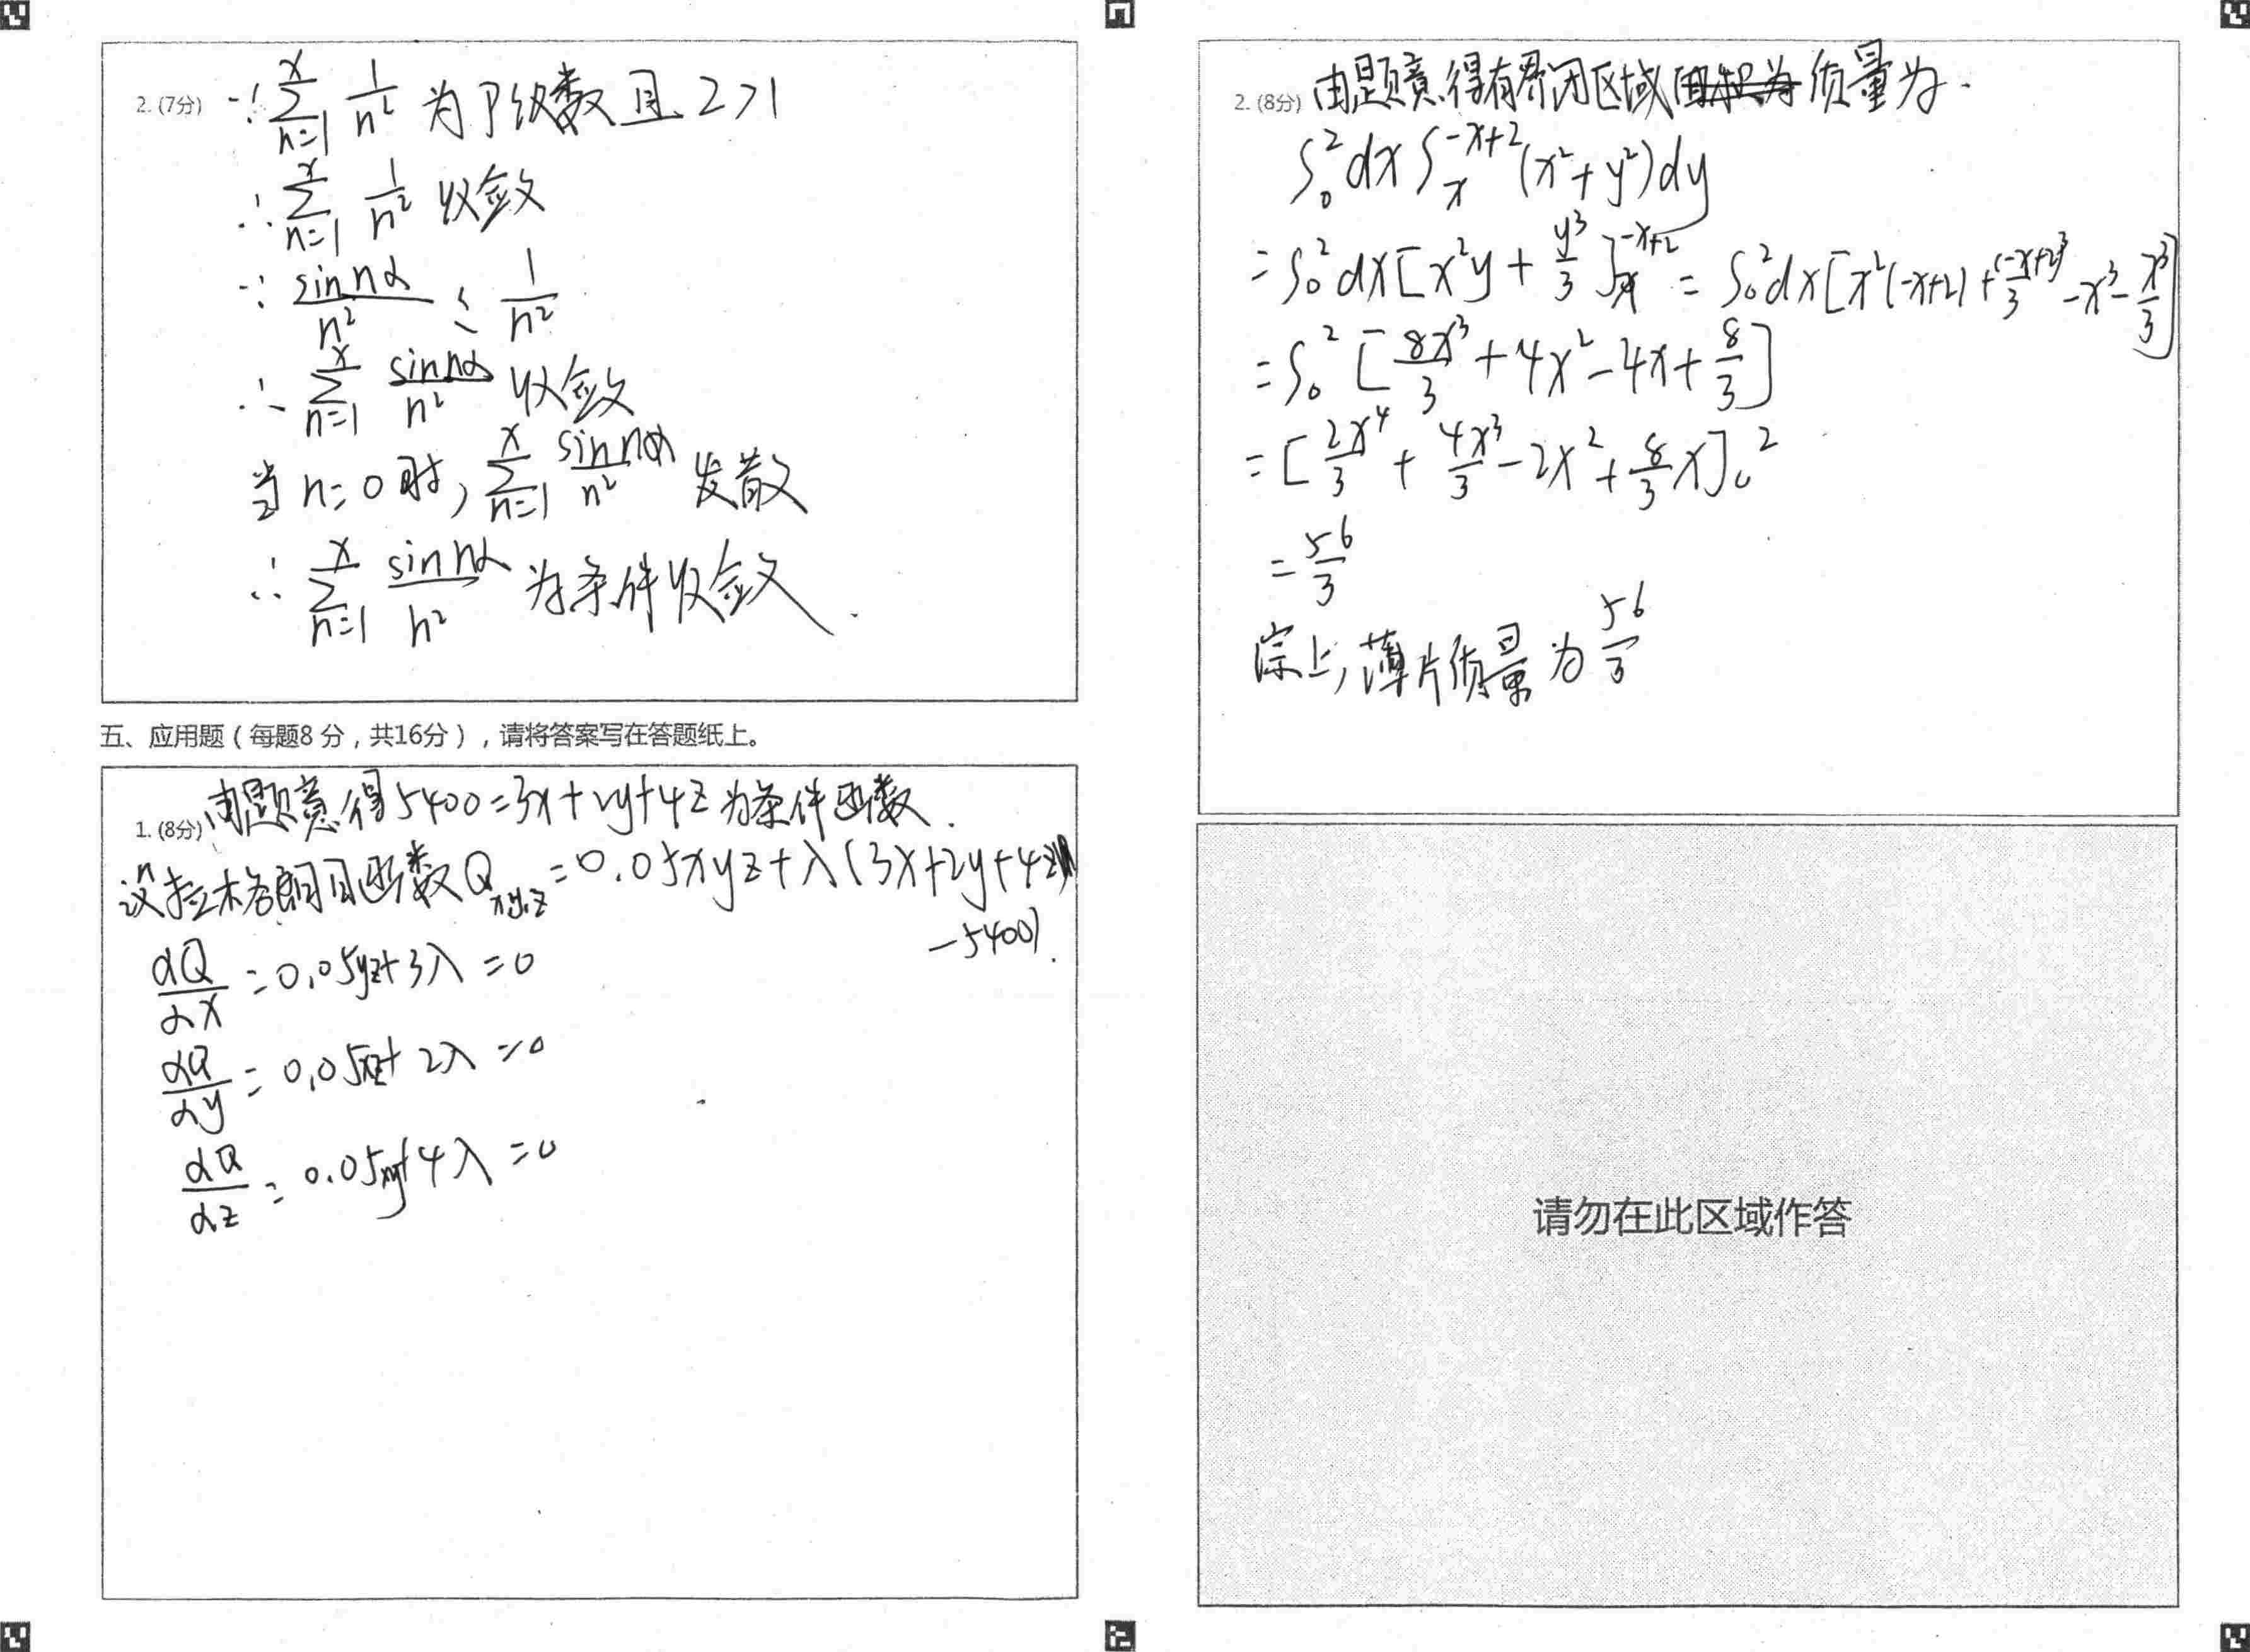 2. (7分) ∵ ∑_{n=1}^{x} 1/n² 为P级数且 2>1
∴ ∑_{n=1}^{x} 1/n² 收敛
∵ sin nα/n² ≤ 1/n²
∴ ∑_{n=1}^{x} sin nα/n² 收敛
当 n=0 时, ∑_{n=1}^{x} sin nα/n² 发散
∴ ∑_{n=1}^{x} sin nα/n² 为条件收敛.
五、应用题（每题8 分，共16分），请将答案写在答题纸上。
1. (8分) 由题意得5400=3x+2y+4z为条件函数.
设拉格朗日函数Q_{x,y,z}=0.05xyz+λ(3x+2y+4z
-5400).
dQ/dx=0.05yz+3λ=0
dQ/dy=0.05xz+2λ=0
dQ/dz=0.05xy+4λ=0
2. (8分) 由题意得有界闭区域质量为.
∫₀² dx ∫_{x}^{-x+2} (x²+y²)dy
=∫₀² dx[x²y+y³/3]_{x}^{-x+2} = ∫₀² dx[x²(-x+2)+(-x+2)³/3-x³-x³/3]
=∫₀² [8x³/3+4x²-4x+8/3]
=[2x⁴/3+4x³/3-2x²+8/3x]₀²
=56/3
综上,薄片质量为56/3
请勿在此区域作答